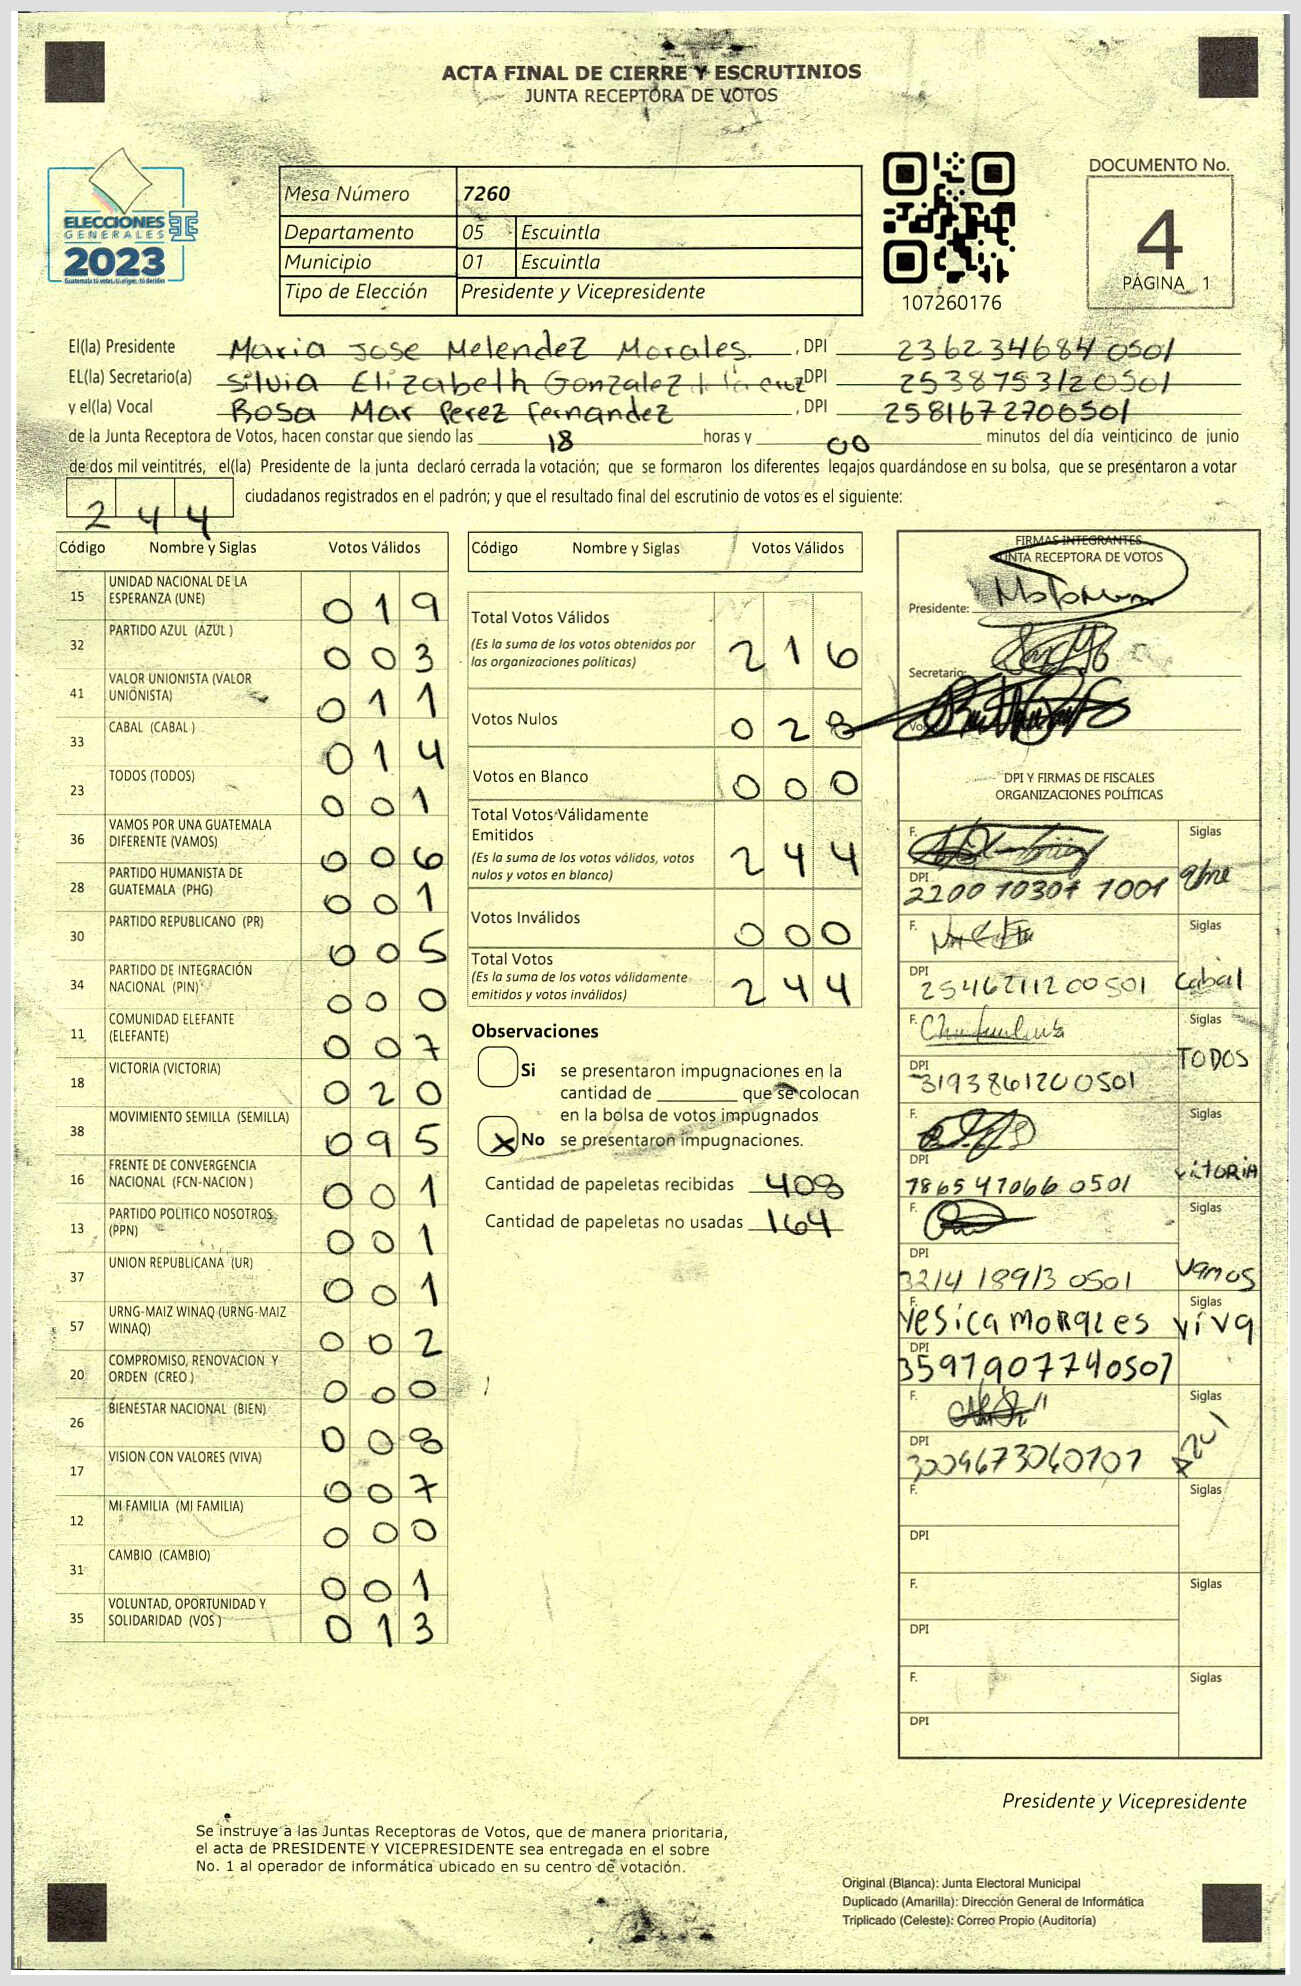 ACTA FINAL DE CIERRE Y ESCRUTINIOS
JUNTA RECEPTORA DE VOTOS
ELECCIONES
GENERALES
2023
Guatemala tú votas, tú eliges, tú decides
Mesa Número 7260
Departamento 05 Escuintla
Municipio 01 Escuintla
Tipo de Elección Presidente y Vicepresidente
107260176
DOCUMENTO No.
4
PÁGINA 1
El(la) Presidente Maria Jose Melendez Morales. , DPI 2362346840501
EL(la) Secretario(a) Silvia Elizabeth Gonzalez la cruz DPI 2538753120501
y el(la) Vocal Rosa Mar Perez Fernandez , DPI 2581672700501
de la Junta Receptora de Votos, hacen constar que siendo las 18 horas y 00 minutos del día veinticinco de junio
de dos mil veintitrés, el(la) Presidente de la junta declaró cerrada la votación; que se formaron los diferentes legajos quardándose en su bolsa, que se presentaron a votar
244 ciudadanos registrados en el padrón; y que el resultado final del escrutinio de votos es el siguiente:
Código Nombre y Siglas Votos Válidos
15 UNIDAD NACIONAL DE LA ESPERANZA (UNE) 019
32 PARTIDO AZUL (AZUL ) 003
41 VALOR UNIONISTA (VALOR UNIONISTA) 011
33 CABAL (CABAL ) 014
23 TODOS (TODOS) 001
36 VAMOS POR UNA GUATEMALA DIFERENTE (VAMOS) 006
28 PARTIDO HUMANISTA DE GUATEMALA (PHG) 001
30 PARTIDO REPUBLICANO (PR) 005
34 PARTIDO DE INTEGRACIÓN NACIONAL (PIN) 000
11 COMUNIDAD ELEFANTE (ELEFANTE) 007
18 VICTORIA (VICTORIA) 020
38 MOVIMIENTO SEMILLA (SEMILLA) 095
16 FRENTE DE CONVERGENCIA NACIONAL (FCN-NACION ) 001
13 PARTIDO POLITICO NOSOTROS (PPN) 001
37 UNION REPUBLICANA (UR) 001
57 URNG-MAIZ WINAQ (URNG-MAIZ WINAQ) 002
20 COMPROMISO, RENOVACION Y ORDEN (CREO ) 000
26 BIENESTAR NACIONAL (BIEN) 008
17 VISION CON VALORES (VIVA) 007
12 MI FAMILIA (MI FAMILIA) 000
31 CAMBIO (CAMBIO) 001
35 VOLUNTAD, OPORTUNIDAD Y SOLIDARIDAD (VOS ) 013
Código Nombre y Siglas Votos Válidos
Total Votos Válidos 216
(Es la suma de los votos obtenidos por
las organizaciones políticas)
Votos Nulos 028
Votos en Blanco 000
Total Votos Válidamente
Emitidos 244
(Es la suma de los votos válidos, votos
nulos y votos en blanco)
Votos Inválidos 000
Total Votos 244
(Es la suma de los votos válidamente
emitidos y votos inválidos)
Observaciones
Si se presentaron impugnaciones en la
cantidad de ________ que se colocan
en la bolsa de votos impugnados
X No se presentaron impugnaciones.
Cantidad de papeletas recibidas 408
Cantidad de papeletas no usadas 164
FIRMAS INTEGRANTES
JUNTA RECEPTORA DE VOTOS
Presidente:
Secretario:
DPI Y FIRMAS DE FISCALES
ORGANIZACIONES POLÍTICAS
F. Siglas
DPI 2200 10307 1001
F. Siglas
DPI 2546211200501 Cabal
F. Siglas
DPI 3193861200501 TODOS
F. Siglas
DPI 7865 47066 0501 vitoria
F. Siglas
DPI 3214 18913 0501 Vamos
F. Yesica morales Siglas viva
DPI 3597907740501
F. Siglas
DPI 3009673060101 Azul
F. Siglas
DPI
F. Siglas
DPI
F. Siglas
DPI
Presidente y Vicepresidente
Se instruye a las Juntas Receptoras de Votos, que de manera prioritaria,
el acta de PRESIDENTE Y VICEPRESIDENTE sea entregada en el sobre
No. 1 al operador de informática ubicado en su centro de votación.
Original (Blanca): Junta Electoral Municipal
Duplicado (Amarilla): Dirección General de Informática
Triplicado (Celeste): Correo Propio (Auditoría)